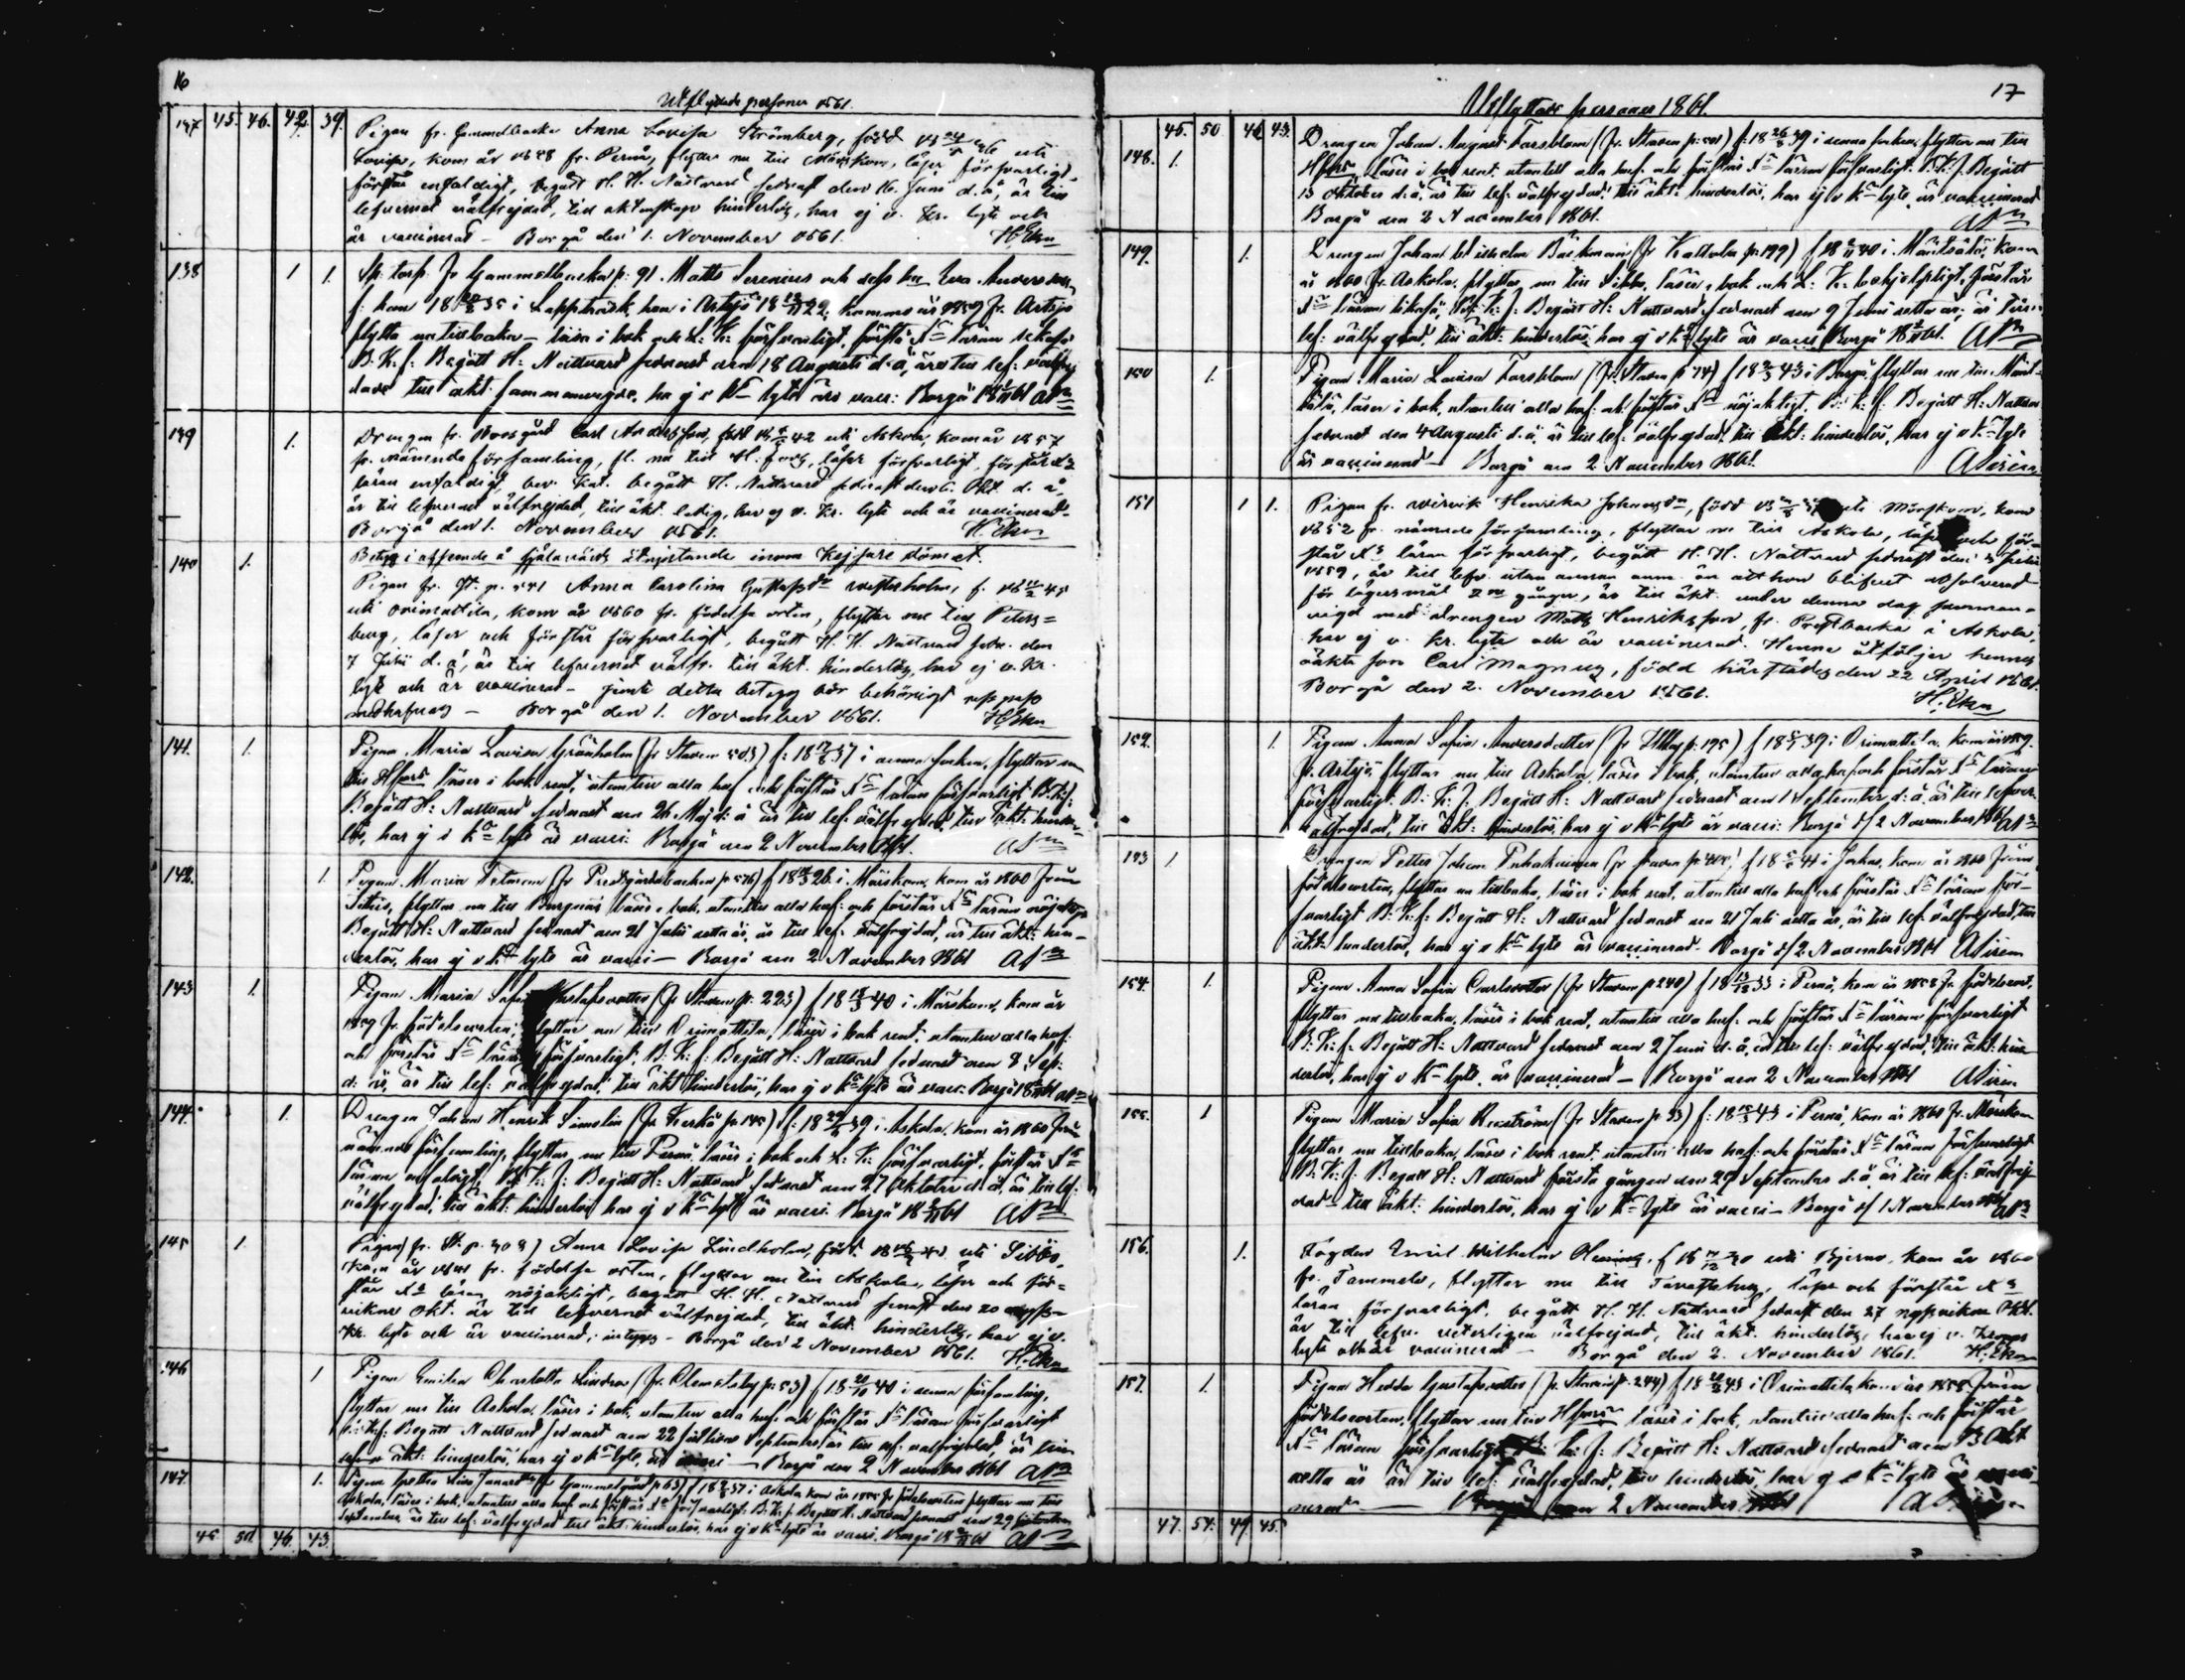 16
Utflyttade personer 1861.
137 45. 46. 42. 39.
Pigan fr. Gammelbacka Anna Lovisa Strömberg, född 18 24/5 26 uti
Lovisa, kom år 1858 fr. Perno, flyttar nu till Mörskom, läser försvarligt,
förstår enfaldigt, begått H. H. Nattvard sednast den 16 Juni d. å, är till
lefvernet välfrejdad, till äktenskap hinderlös, har ej v. kr. lyte och
är vaccinerad – Borgå den 1. November 1861. H. Ekm
138 1 1.
Sp: torp. fr Gammelbacka p: 91. Matts Serenius och dess hu Eva Andersdotter
f: han 18 35 i Lappträsk, hon i Artsjö 18 22, kommo år 1859 fr. Artsjö
flytta nu tillbaka – läsa i bok och L: K: försvarligt, förstå Xs läran likaså
B. K. f. Begått H: Nattvard sednast den 18 Augusti d. å, äro till lef: välfrej
dade till äkt. sammanvigde, ha ej v kr lyte äro vacc: Borgå 18 61
139 1.
Drengen fr. Boe gård Carl Andersson, född 18 42 uti Askola, kom år 1857
fr. nämnde församling, fl. nu till H:fors, läser försvarligt, förstår Xs
läran enfaldigt, bev. kat. begått H. Nattvard sednast den 6. Okt. d. å,
är till lefvernet välfrejdad, till äkt. ledig, har ej v. kr. lyte och är vaccinerad–
Borgå den 1. November 1861. H. Ekm
140 1.
Betyg i afseende å själavårds åtnjutande inom Kejsaredömet.
Pigan fr. St. p. 541 Anna Carolina Gustafsdr Westerholm, f. 18 45
uti Orimattila, kom år 1860 fr. födelse orten, flyttar nu till Peters=
burg, läser och förstår försvarligt, begått H. H. Nattvard sedn. den
7 Juli d. å, är till lefvernet välfr. till äkt. hinderlös, har ej v. kr.
lyte och är vaccinerad – jemte detta betyg bör behörigt respass
medhafvas – Borgå den 1. November 1861. H. Ekm
141. 1.
Pigan Maria Lovisa Grönholm (fr Staden 503) f: 18 37 i denna socken, flyttar nu
till Hfors läser i bok rent, utantill alla huf: och förstår Xs läran försvarligt B:K:f:
Begått H: Nattvard sednast den 26. Maj d: å är till lef. välfrejdad, till äkt: hinder=
lös, har ej v kr lyte är vacci: Borgå den 2 November 1861.
142. 1.
Pigan Maria (fr Prestgårdsbacken p 576) f 18 26 i Mörskom, kom år 1860 från
flyttar nu till Borgnäs läser i bok, utantill alla huf: och förstår Xs läran nöjaktigt
Begått H: Nattvard sednast den 21 Julii detta år, är till lef: välfrejdad, är till äkt: hin–
derlös, har ej v kr lyte är vacci – Borgå den 2 November 1861
143 1.
Pigan Maria Sofia Gustafsdotter (fr Staden p: 223) f 18 40 i Mörskom, kom år
1859 fr. födelseorten; flyttar nu till Orimattila, läser i bok rent; utantill alla huf:
och förstår Xs läran försvarligt. B: K: f: Begått H: Nattvard sednast den 8 Sept:
d: år, är till lef: välfrejdad, till äkt hinderlös, har ej v kr lyte är vacc: Borgå 18 61
144. 1.
Drengen Johan Henrik Simolin (fr Kerkö p: 145) f: 18 39 i Askola, kom år 1860 från
nämnde församling, flyttar nu till Perno, läser i bok och L: K: försvarligt, förstår Xs
läran enfaldigt, B: K: f: Begått H: Nattvard sednast den 27 Oktober d. å, är till lef:
välfrejdad, till äkt: hinderlös har ej v kr lyte är vacci. Borgå 18 61
145 1.
Pigan fr. St. p. 308) Anna Lovisa Lindholm, född 18 uti Sibbo,
kom år fr. födelse orten, flyttar nu till Askola, läser och för=
står Xs läran nöjaktigt, begått H. H. Nattvard senast den 20 nyss=
vikne Okt. är till lefvernet välfrejdad, till äkt. hinderlös, har ej v.
kr. lyte och är vaccinerad, intygas – Borgå den 2 November 1861. H. Ekm
146 1
Pigan Emilia Charlotta Lindros (fr. Clemetsby p: 53) f 18 20/10 40 i denna församling,
flyttar nu till Askola, läser i bok, utantill alla huf: och förstår Xs läran försvarligt
B: K: f: Begått Nattvard sednast den 22 sistlidne September är till lef: välfrejdad, är till
äkt: hinderlös, har ej v kr lyte, är vacci – Borgå den 2 November 1861
147. 1.
Pigan Gretha Lisa (fr Gammelgård p 63) f 18 37 i Askola kom år 1855 fr födelseorten flyttar nu till
Askola, läser i bok, utantill alla huf och förstår Xs försvarligt. B: K: f: Begått H: Nattvard sednast den 29 sistledne
September, är till lef: välfrejdad till äkt: hinderlös, har ej v kr lyte är vacci. Borgå 18 61
45 50 46. 43.
17
Utflyttade personer 1861.
45. 50 46 43.
148. 1.
Drengen Johan August Forsblom (fr. Staden p: 501) f: 18 26/8 39 i denna socken, flyttar nu till
Hfors läser i bok rent, utantill alla huf: och förstår Xs läran försvarligt. B: K: f. Begått
13 Oktober d: å, är till lef: välfrejdad till äkt: hinderlös, har ej v kr lyte, är vaccinerad
Borgå den 2 November 1861.
149. 1.
Drengen Johan Wilhelm Bäckman (fr Kallola p: 199) f 18 40 i Mäntsälä, kom
år 1860 fr. Askola, flyttar, nu till Sibbo, läser, i bok och L: K: försvarligt, förstår
Xs läran likaså, B: K: f: Begått H: Nattvard sednast den 9 Juni detta år; är till
lef: välfrejdad, till äkt: hinderlös har ej v kr lyte är vacci Borgå 18 61.
150 1.
Pigan Maria Lovisa Forsblom (fr Staden p 74) f 18 43 i Borgå, flyttar nu till Mänt-
sälä, läser i bok, utantill alla huf: och förstår Xs nöjaktigt, B: K: f: Begått H: Nattvar
sednast den 4 Augusti d. å, är till lef: välfrejdad, till äkt: hinderlös, har ej v kr lyte
är vaccinerad – Borgå den 2 November 1861. ASirén
151 1 1.
Pigan fr. Wirvik Henrika Johansdr, född 18 uti Mörskom, kom
1852 fr. nämnde församling, flyttar nu till Askola, läser och för=
står Xs läran försvarligt, begått H. H. Nattvard sednast den
1859, är till lefv. utan annan anm. än att hon blifvit absolverad
för lägersmål 2ne gånger, är till äkt. under denna dag samman=
vigd med drengen Matts Henriksson, fr. Prestbacka i Askola,
har ej v. kr. lyte och är vaccinerad. Henne åtföljer hennes
oäkta son Carl Magnus, född härstädes den 22 April 1861.
Borgå den 2. November 1861. H. Ekm
152. 1
Pigan Anna Sofia Andersdotter (fr Illby p: 195) f 18 39 i Orimattila kom år 1859
fr. Artsjö, flyttar nu till Askola, läser i bok, utantill alla huf och förstår Xs läran
försvarligt. B: K: f. Begått H: Nattvard sednast den 1 September d: å. är till lefver.
välfrejdad, till äkt: hinderlös har ej v kr lyte är vacci: Borgå d/ 2 November 1861
153 1.
Drengen Petter Johan Puhakainen (fr staden p: 401) f 18 41 i Jockas, kom år 1860 från
födelseorten, flyttar nu tillbaka, läser i bok rent, utantill alla huf och förstår Xs läran för–
svarligt B: K: f: Begått H: Nattvard sednast den 21 Juli detta år, är till lef: välfrejdad, till
äkt: hinderlös, har ej v kr lyte är vaccinerad – Borgå d/ 2 November 1861 ASirén
154. 1.
Pigan Anna Sofia Carlsdotter (fr Staden p 240) f 18 13/12 33 i Perno, kom år 1858 fr. födelseort,
flyttar nu tillbaka, läser i bok rent, utantill alla huf: och förstår Xs läran försvarligt
B: K: f. Begått H: Nattvard sednast den 2 Juni d. å, är till lef: välfrejdad, till äkt: hin
derlös, har ej v kr lyte, är vaccinerad – Borgå den 2 November 1861 ASirén
155. 1
Pigan Maria Sofia Renström (fr Staden p: 33) f: 18 43 i Perno, kom år 1860 fr. Mörskom
flyttar nu tillbaka, läser i bok rent, utantill alla huf: och förstår Xs läran försvarligt
B: K: f: Begått H: Nattvard första gången den 29 September d: å, är till lef: välfrej
dad – till äkt: hinderlös, har ej v kr lyte är vacci – Borgå d/ 1 November 1861
156. 1.
Fogden Emil Wilhelm, f 18 30 uti Bjerno, kom år 1860
fr. Tammela, flyttar nu till Tavastehus, läser och förstår Xs
läran försvarligt, begått H. H. Nattvard sednast den 27 nyssvikne Okt.
är till lefv. veterligen välfrejdad, till äkt. hinderlös, har ej v. kropps
lyte och är vaccinerad – Borgå den 2. November 1861. H. Ekm
157. 1.
Pigan Hedda Gustafsdotter (fr. Staden p. 244) f 18 43 i Orimattila kom år 1858 från
födelseorten, flyttar nu till Hfors läser i bok, utantill alla huf: och förstår
Xs läran försvarligt B: K: f: Begått H: Nattvard sednast den 13 Okt
detta år är till lef: välfrejdad, till hinderlös, har ej v kr lyte är vacci
nerad – Borgå den 2 November 1861
47. 54. 49 45.